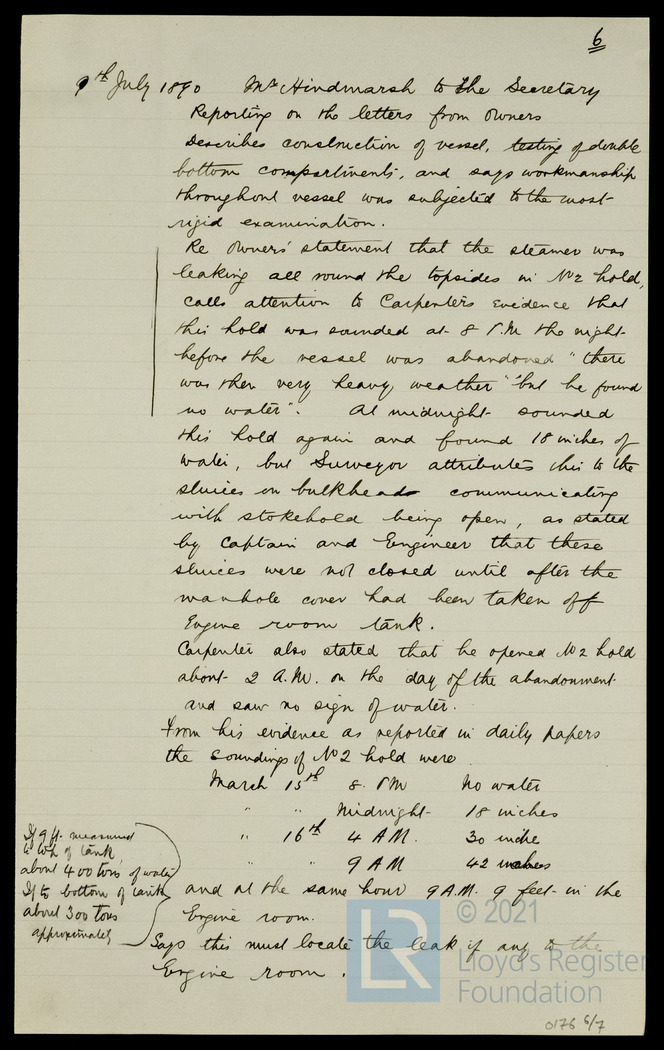 6
9th July 1890 Mr Hindmarsh to the Secretary
Reporting on the letters from owners
Describes construction of vessel, testing of double
bottom compartments, and says workmanship
throughout vessel was subjected to the most
rigid examination.
Re Owners' statement that the steamer was
leaking all round the topsides in No 2 hold,
calls attention to Carpenters evidence that
this hold was sounded at 8 P.M the night
before the vessel was abandoned "there
was then very heavy weather" "but he found
no water". At midnight sounded
this hold again and found 18 inches of
water, but Surveyor attributes this to the
sluices on bulkheads communicating
with stokehold being open, as stated
by Captain and Engineer that these
sluices were not closed until after the
manhole cover had been taken off
Engine room tank.
Carpenter also stated that he opened No 2 hold
about 2 A.M. on the day of the abandonment
and saw no sign of water.
From his evidence as reported in daily papers
the soundings of No 2 hold were
March 15th 8. PM No water
" " Midnight 18 inches
" 16th 4 AM. 30 inche
" " 9 AM 42 inches
and at the same hour 9 A.M. 9 feet in the
Engine room.
Says this must locate the leak if any to the
Engine room.
If 9 ft. measured
to top of tank
about 400 tons of water
If to bottom of tank
about 300 tons
approximately
© 2021
LR
Lloyd's Register
Foundation
0176 6/7